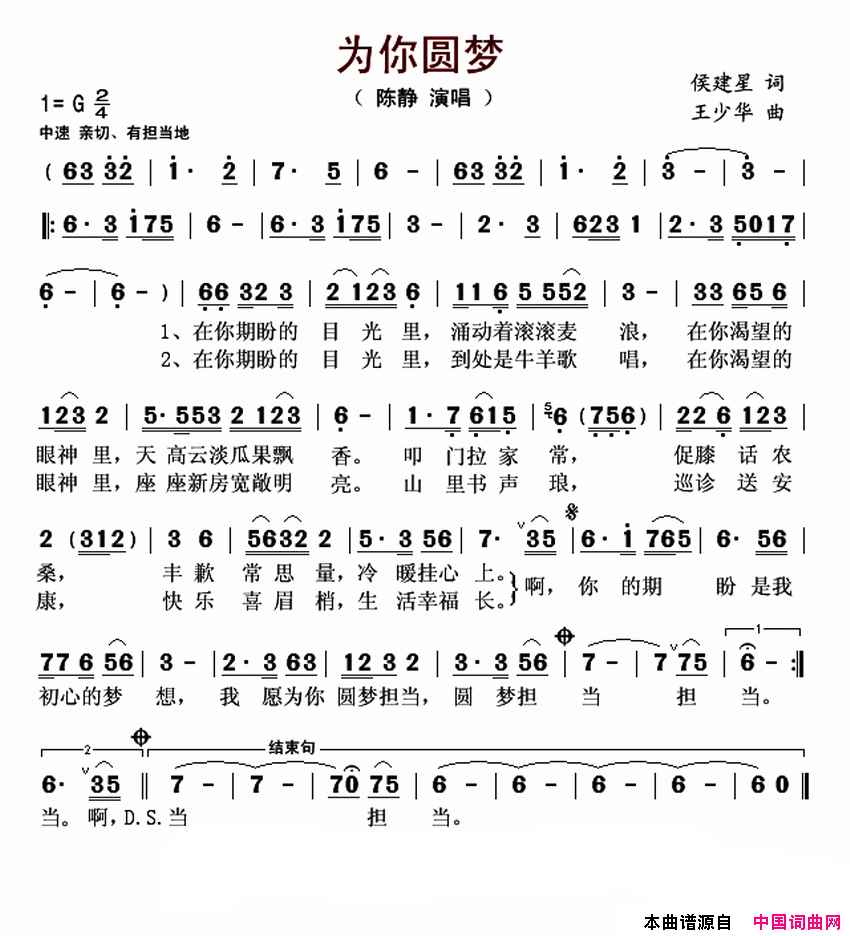 为你圆梦
（ 陈静 演唱 ）
侯建星 词
1= G 2/4
王少华 曲
中速 亲切、有担当地
( 63 32 | 1· 2 | 7· 5 | 6 - | 63 32 | 1· 2 | 3 - | 3 - |
|: 6· 3 175 | 6 - | 6· 3 175 | 3 - | 2· 3 | 623 1 | 2· 3 5017 |
6 - | 6 - ) | 66 32 3 | 2 123 6 | 11 6 5 552 | 3 - | 33 65 6 |
1、在你期盼的 目 光 里，涌动着滚滚麦 浪， 在你渴望的
2、在你期盼的 目 光 里，到处是牛羊歌 唱， 在你渴望的
123 2 | 5· 553 2 123 | 6 - | 1· 7 615 | 5 6 (756) | 22 6 123 |
眼神 里，天 高云淡瓜果飘 香。 叩 门拉 家 常， 促膝 话 农
眼神 里，座 座新房宽敞明 亮。 山 里书 声 琅， 巡诊 送 安
2 (312) | 3 6 | 5632 2 | 5· 3 56 | 7· ∨ 35 | 6· 1 765 | 6· 56 |
桑， 丰 歉 常 思 量，冷 暖挂心 上。 啊，你 的期 盼是我
康， 快 乐 喜 眉 梢，生 活幸福 长。
77 6 56 | 3 - | 2· 3 63 | 12 3 2 | 3· 3 56 | 7 - | 7 ∨ 75 | 1 6 - :|
初心的梦 想， 我 愿为你 圆梦担当，圆 梦担 当 担 当。
2 结束句
6· ∨ 35 || 7 - | 7 - | 70 75 | 6 - | 6 - | 6 - | 6 - | 6 0 ||
当。啊，D.S.当 担 当。
本曲谱源自 中国词曲网